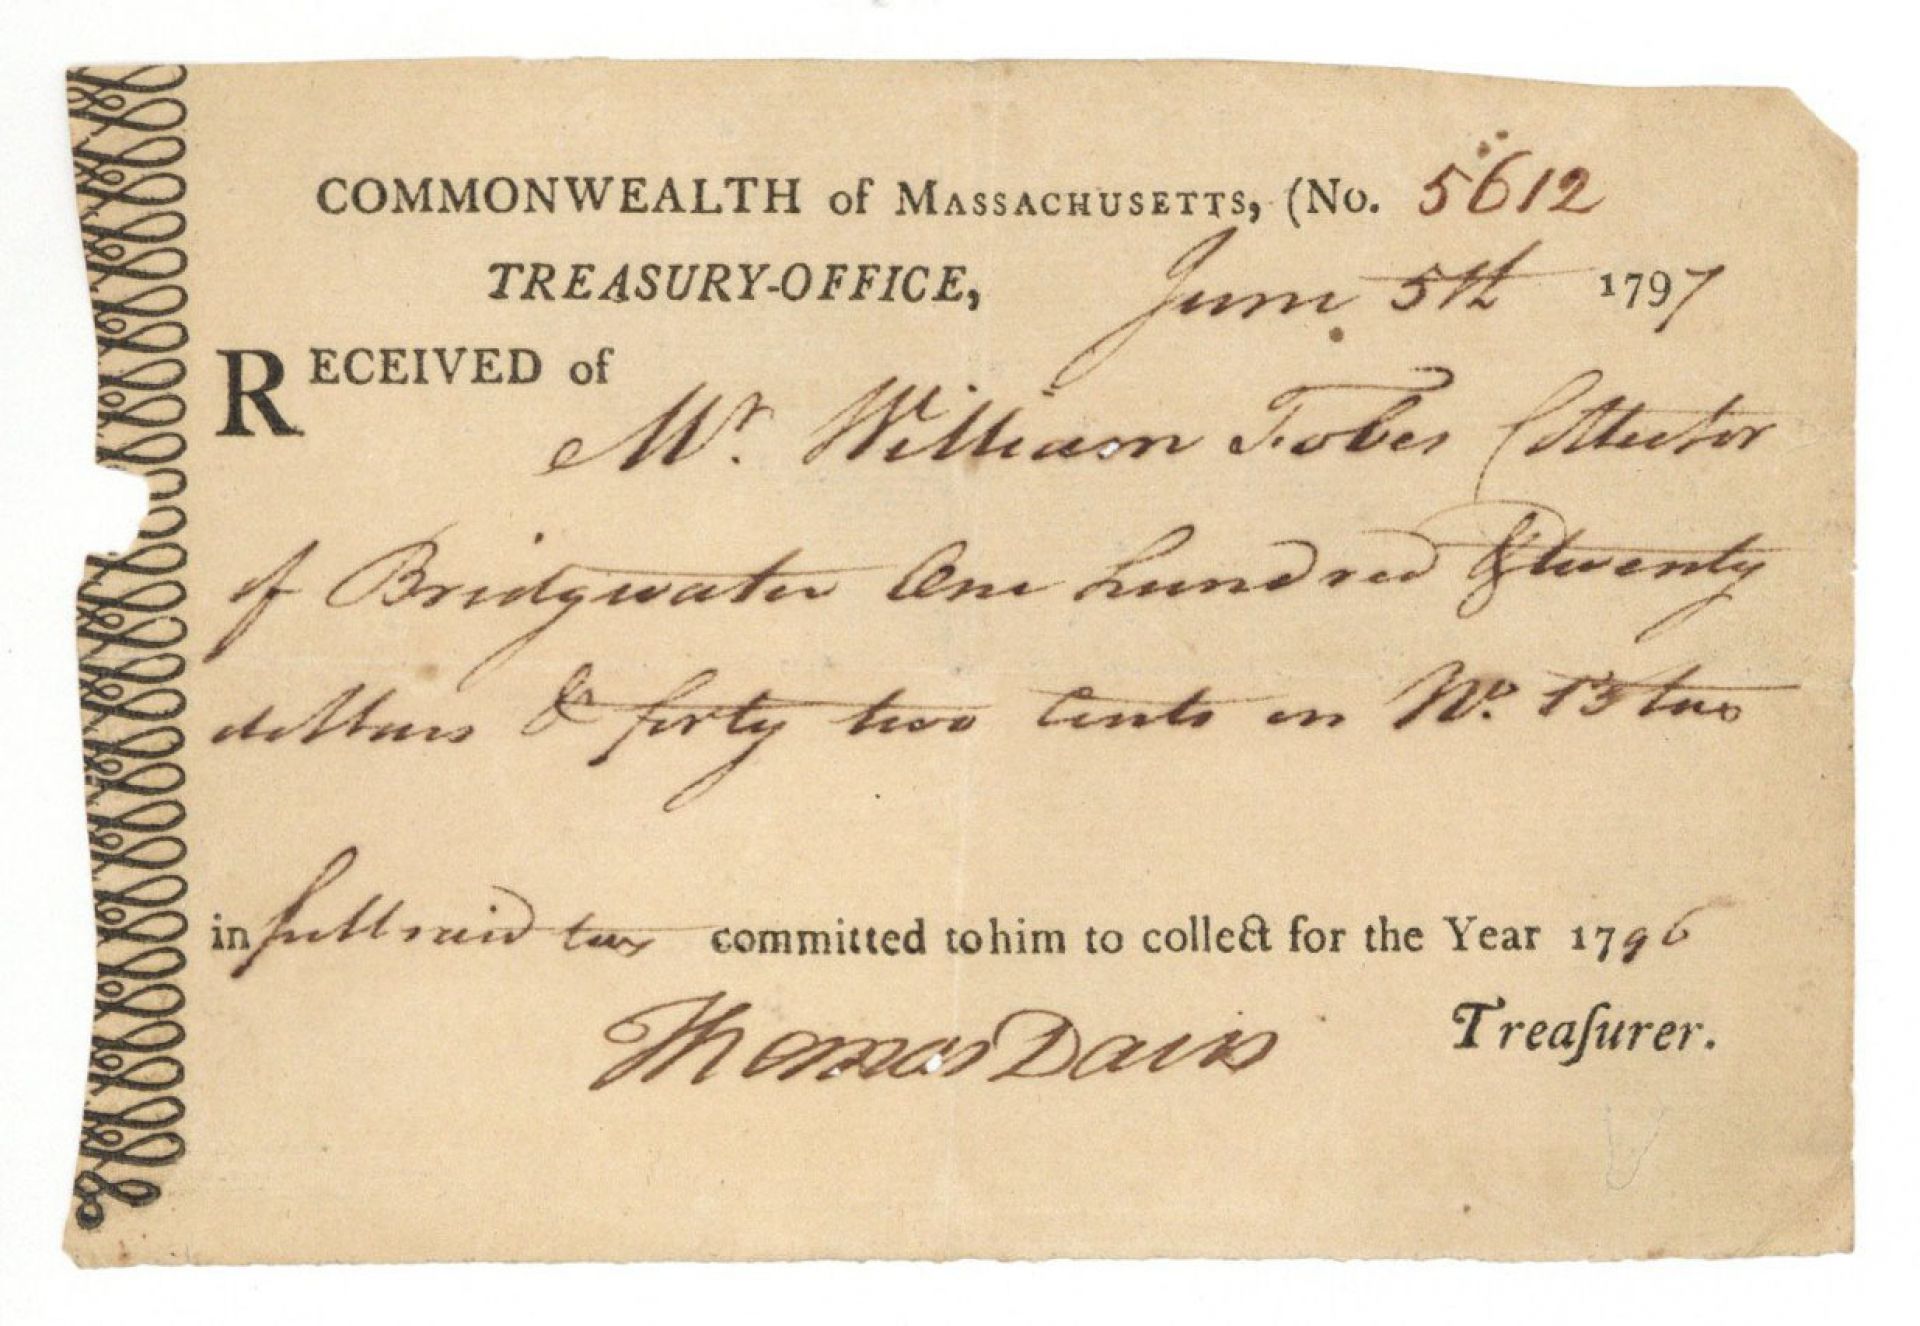 COMMONWEALTH of MASSACHUSETTS, (No. 5612
TREASURY-OFFICE, June 5th 1797
RECEIVED of
Mr. William Fobes Collector
of Bridgwater One hundred & twenty
dollars & forty two Cents on No. 13 tax
in full said tax committed to him to collect for the Year 1796
Thomas Davis Treaſurer.